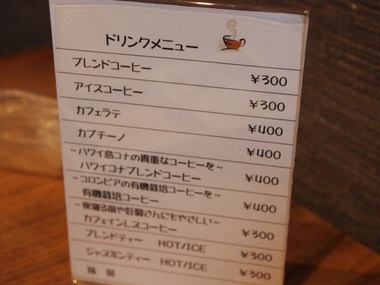 ドリンクメニュー
ブレンドコーヒー ¥300
アイスコーヒー ¥300
カフェラテ ¥400
カプチーノ ¥400
～ハワイ島コナの貴重なコーヒーを～
ハワイコナブレンドコーヒー ¥400
～コロンビアの有機栽培コーヒーを～
有機栽培コーヒー ¥400
～夜寝る前や妊婦さんにもやさしい～
カフェインレスコーヒー ¥300
ブレンドティー HOT/ICE ¥300
ジャスミンティー HOT/ICE ¥300